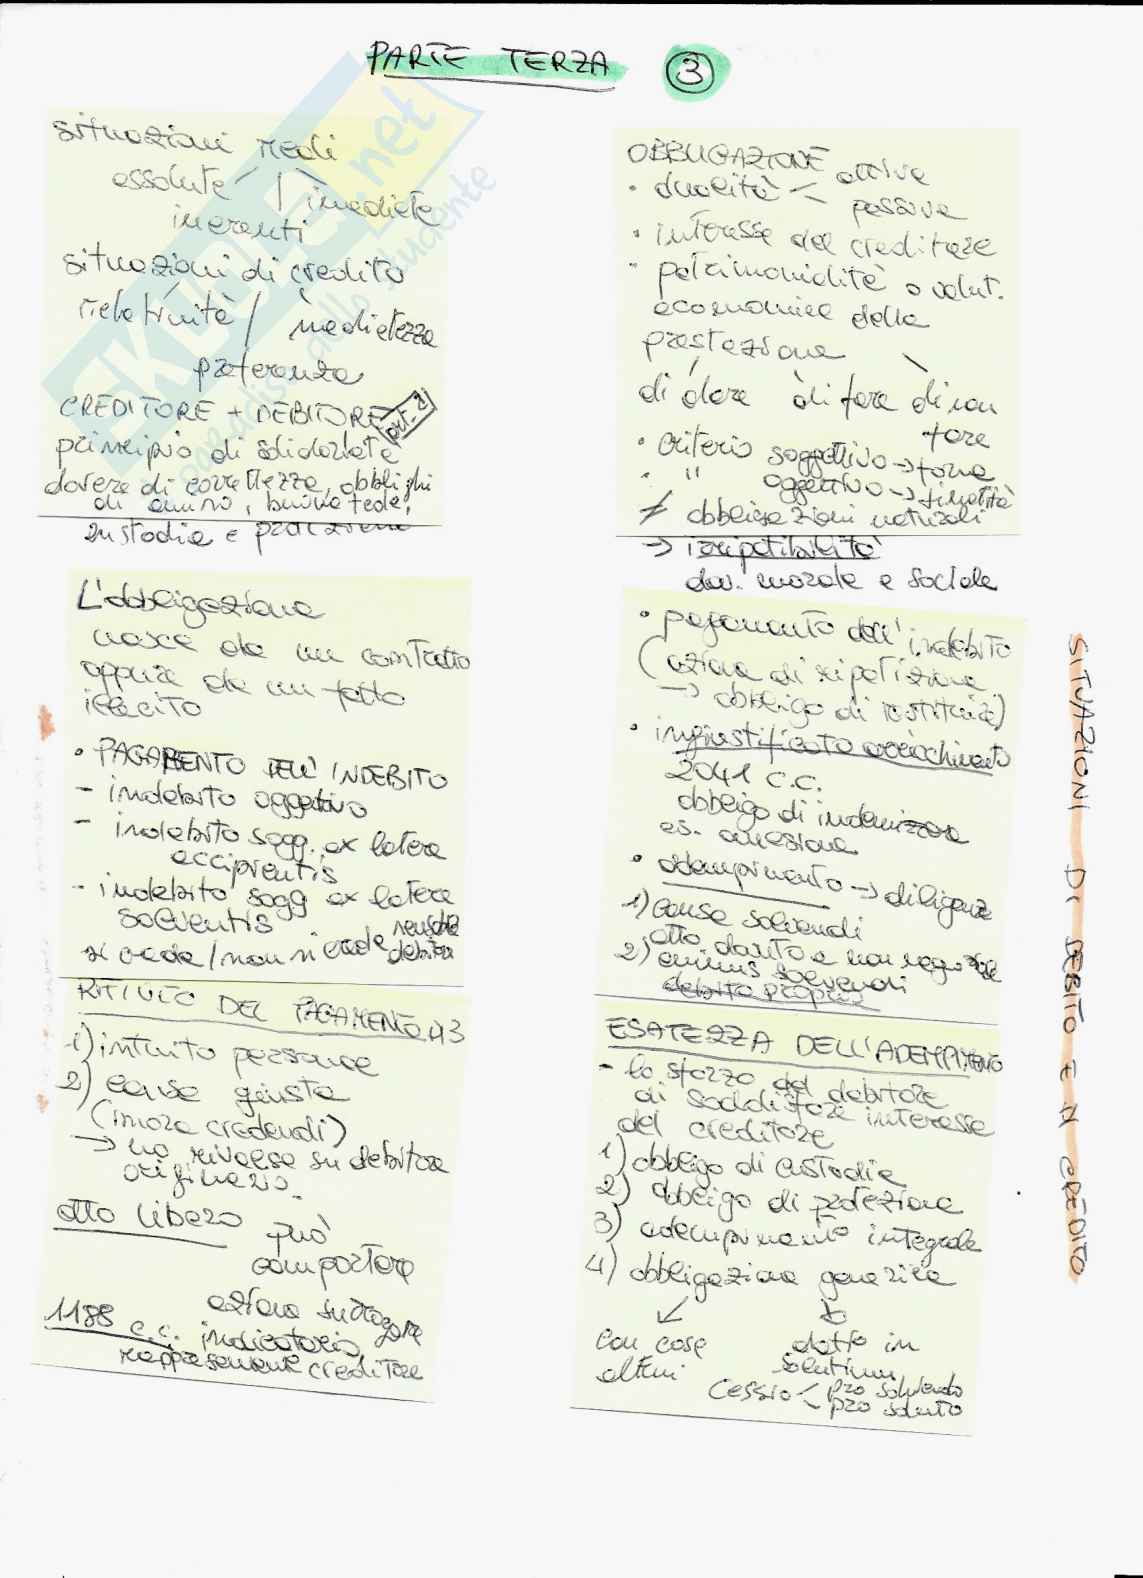 PARTE TERZA 3
situazioni reali
assolute / immediate
inerenti
situazioni di credito
relatività / mediatezza
preferenza
CREDITORE + DEBITORE
art. 2
principio di solidarietà
dovere di correttezza, obblighi
di avviso, buona fede,
custodia e protezione
OBBLIGAZIONE
• dualità < attiva
passiva
• interesse del creditore
• patrimonialità o valut.
economica della
prestazione
di dare di fare di non
fare
• criterio soggettivo → forma
• " oggettivo → finalità
≠ obbligazioni naturali
→ irripetibilità
dov. morale e sociale
L'obbligazione
nasce da un contratto
oppure da un fatto
illecito
• PAGAMENTO DELL'INDEBITO
- indebito oggettivo
- indebito sogg. ex latere
accipientis
- indebito sogg ex latere
solventis
si crede / non si crede
debitore
• pagamento dell'indebito
(azione di ripetizione
→ obbligo di restituire)
• ingiustificato arricchimento
2041 c.c.
obbligo di indennizzare
es. accessione
• adempimento → diligenza
1) causa solvendi
atto dovuto e non negoziale
2) animus solvendi
debito proprio
RIFIUTO DEL PAGAMENTO
1) intuito personae
2) causa giusta
(mora credendi)
→ no rivalsa su debitore
originario.
atto libero può
comportare
azione surrogatoria
1188 c.c. indicatario,
rappresentante creditore
ESATTEZZA DELL'ADEMPIMENTO
- lo sforzo del debitore
di soddisfare interesse
del creditore
1) obbligo di custodia
2) obbligo di protezione
3) adempimento integrale
4) obbligazione generica
con cose
altrui
datio in
solutum
cessio < pro solvendo
pro soluto
SITUAZIONI DI DEBITO E DI CREDITO
SKUOLA.net
il paradiso dello studente